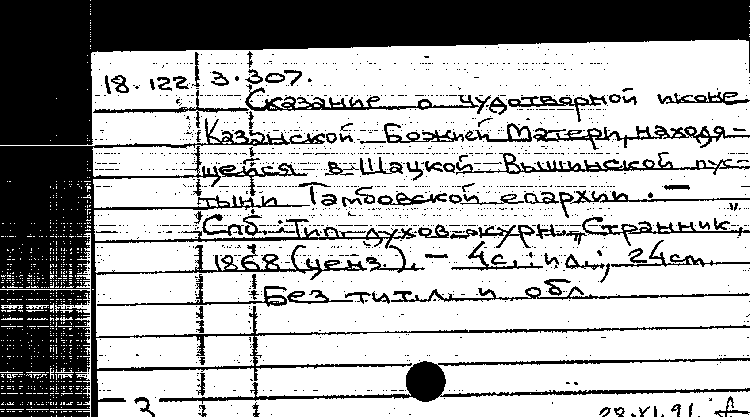 18.122 3.307.
Сказание о чудотворной иконе
Казанской Божией Матери, находя-
щейся в Шацкой Вышинской пус-
тыни Тамбовской епархии. —
Спб.: Тип. духов. журн. „Странник",
1868 (ценз.). — 4с.: ил.; 24см.
Без тит.л. и обл.
3
28.XI.91.